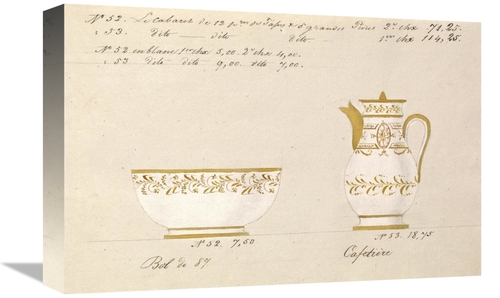 N° 52. Le cabaret de 12 pces en Tasses & 5 grandes Pièces 2e chx 71,25.
" 53. dito — dito — dito 1er chx 114,25.
N° 52 en blanc 1er chx 5,00. 2e chx 4,00.
" 53 dito dito 9,00. dito 7,00.
N° 52. 7,50
N° 53. 18,75
Bol de 87
Cafetière